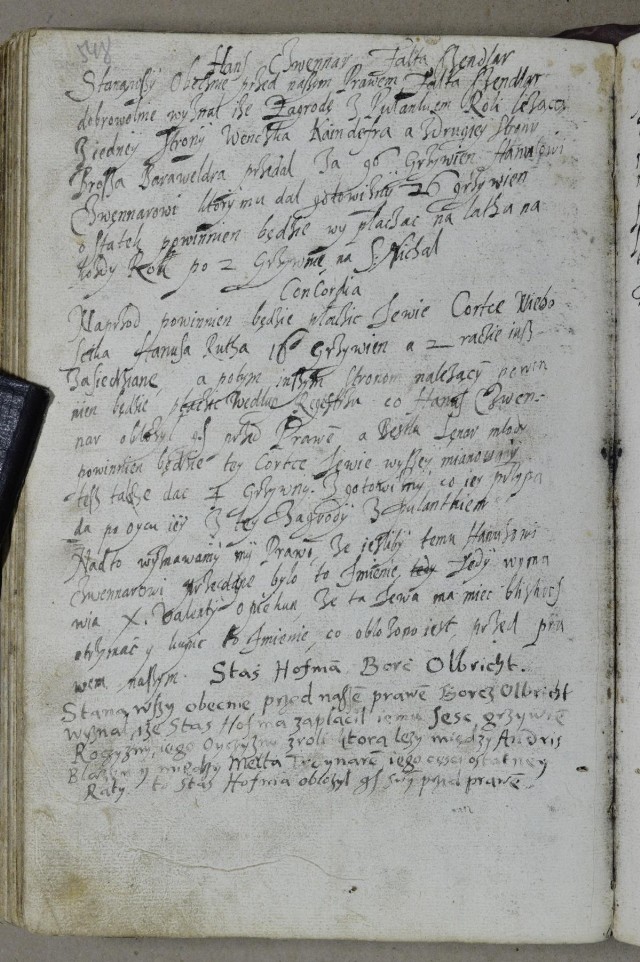 548
Hans Czwennar Falta Stendlar
Stanąwszy Obecznie przed naszym Prawem Falta Stendlar
dobrowolnie wyznał isze Zagrodę z Pulankiem Roli lezącą
z iedney strony Wenczka Kaindefra a z drugiey strony
Brossa Baraweldra przedal Za 96 Grzywien Hanusowi
Czwennarowi który mu dal gotowizną 26 grzywien
ostatek powinnien będzie wypłaczac na latha na
kozdy Rok po 2 Grzywnie na S. Michal
Concordia
Naprzod powinnien będzie płacic Jewie Cortce Niebo
scika Hanusa Rutha 16 Grzywien a 2 racie iusz
Zasiedziane, a potym inszym stronom należączy powin
nien będzie płacic wedlug Regestru co Hans Czwen-
nar oblozyl gſ przed Prawe a
powinnien będzie tey Cortce Jewie wyszey mianowany
tesz także dac 1 Grzywny z gotowizny, co iey przypa
da po oycu iey z tey Zagrody z Pulankiem
Nadto wyznawamy my Prawo, ze iesliby temu Hanusowi
Czwennarowi przedane bylo to Imienie, tedy Tedy wyma
wia X. Valenty opiekun ze ta Jewa ma miec bliskosc
otrzymać y kupic to Imienie, co oblozono iest, przed pra
wem naszym. Staś Hofmā Borć Olbricht.
Stanąwszy obecnie przed naszē prawē Borcz Olbricht
wyznal, isze Staś Hofma zaplacil iemu sesc grzywiē
oyczyzny z roli ktora lezy między Andris
y między Melta Treynarē iego czesci ostatney
Raty. to Staś Hofma oblozyl gſ swy przed prawē.